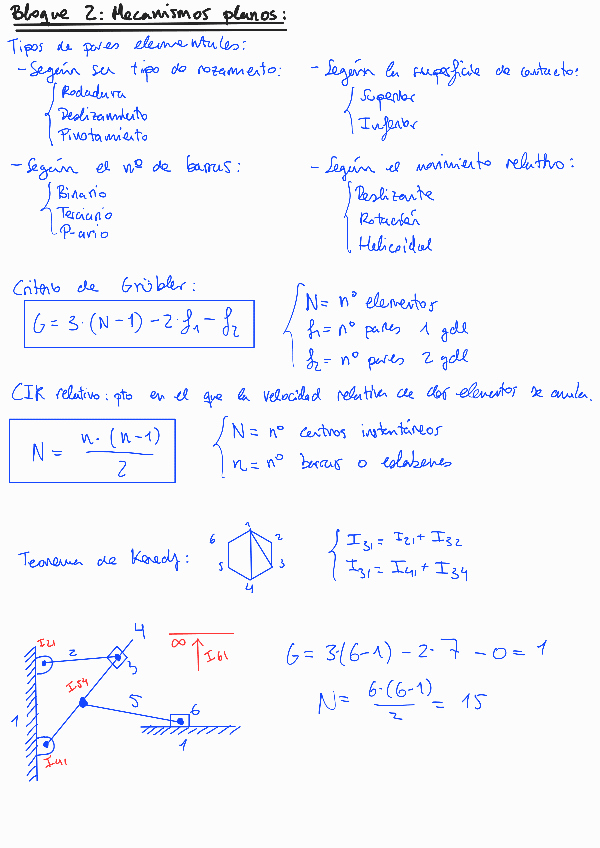 Bloque 2: Mecanismos planos:
Tipos de pares elementales:
- Según su tipo de rozamiento:
Rodadura
Deslizamiento
Pivotamiento
- Según la superficie de contacto:
Superior
Inferior
- Según el nº de barras:
Binario
Terciario
P-ario
- Según el movimiento relativo:
Deslizante
Rotación
Helicoidal
Criterio de Grübler:
G = 3·(N-1) - 2·f₁ - f₂
N = nº elementos
f₁ = nº pares 1 gdl
f₂ = nº pares 2 gdl
CIR relativo: pto en el que la velocidad relativa de dos elementos se anula.
N = n·(n-1) / 2
N = nº centros instantáneos
n = nº barras o eslabones
Teorema de Kenedy:
1
2
3
4
5
6
I₃₁ = I₂₁ + I₃₂
I₃₁ = I₄₁ + I₃₄
I21
2
4
3
I54
5
6
1
1
I41
∞
I61
G = 3·(6-1) - 2·7 - 0 = 1
N = 6·(6-1) / 2 = 15